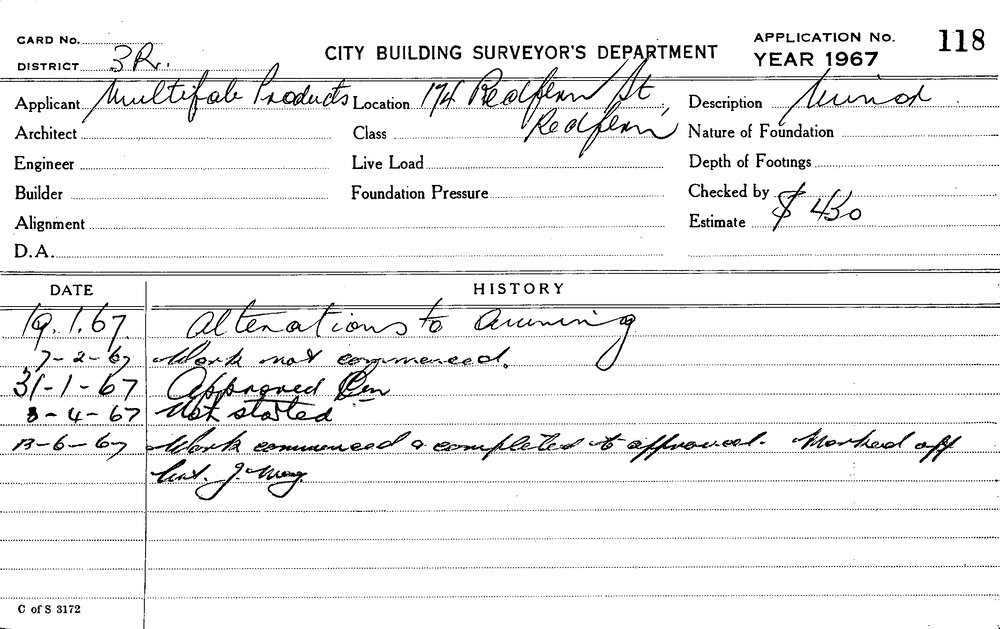 CARD No.
DISTRICT 3R.
CITY BUILDING SURVEYOR'S DEPARTMENT
APPLICATION No. 118
YEAR 1967
Applicant Multifab Products Location 174 Redfern St Redfern Description Minor
Architect Class Nature of Foundation
Engineer Live Load Depth of Footings
Builder Foundation Pressure Checked by
Alignment Estimate $ 450
D.A.
DATE HISTORY
19.1.67. Alterations to Awning
7-2-67 Work not commenced.
31-1-67 Approved
3-4-67 Not started
13-6-67 Work commenced & completed to approval. Marked off
C of S 3172